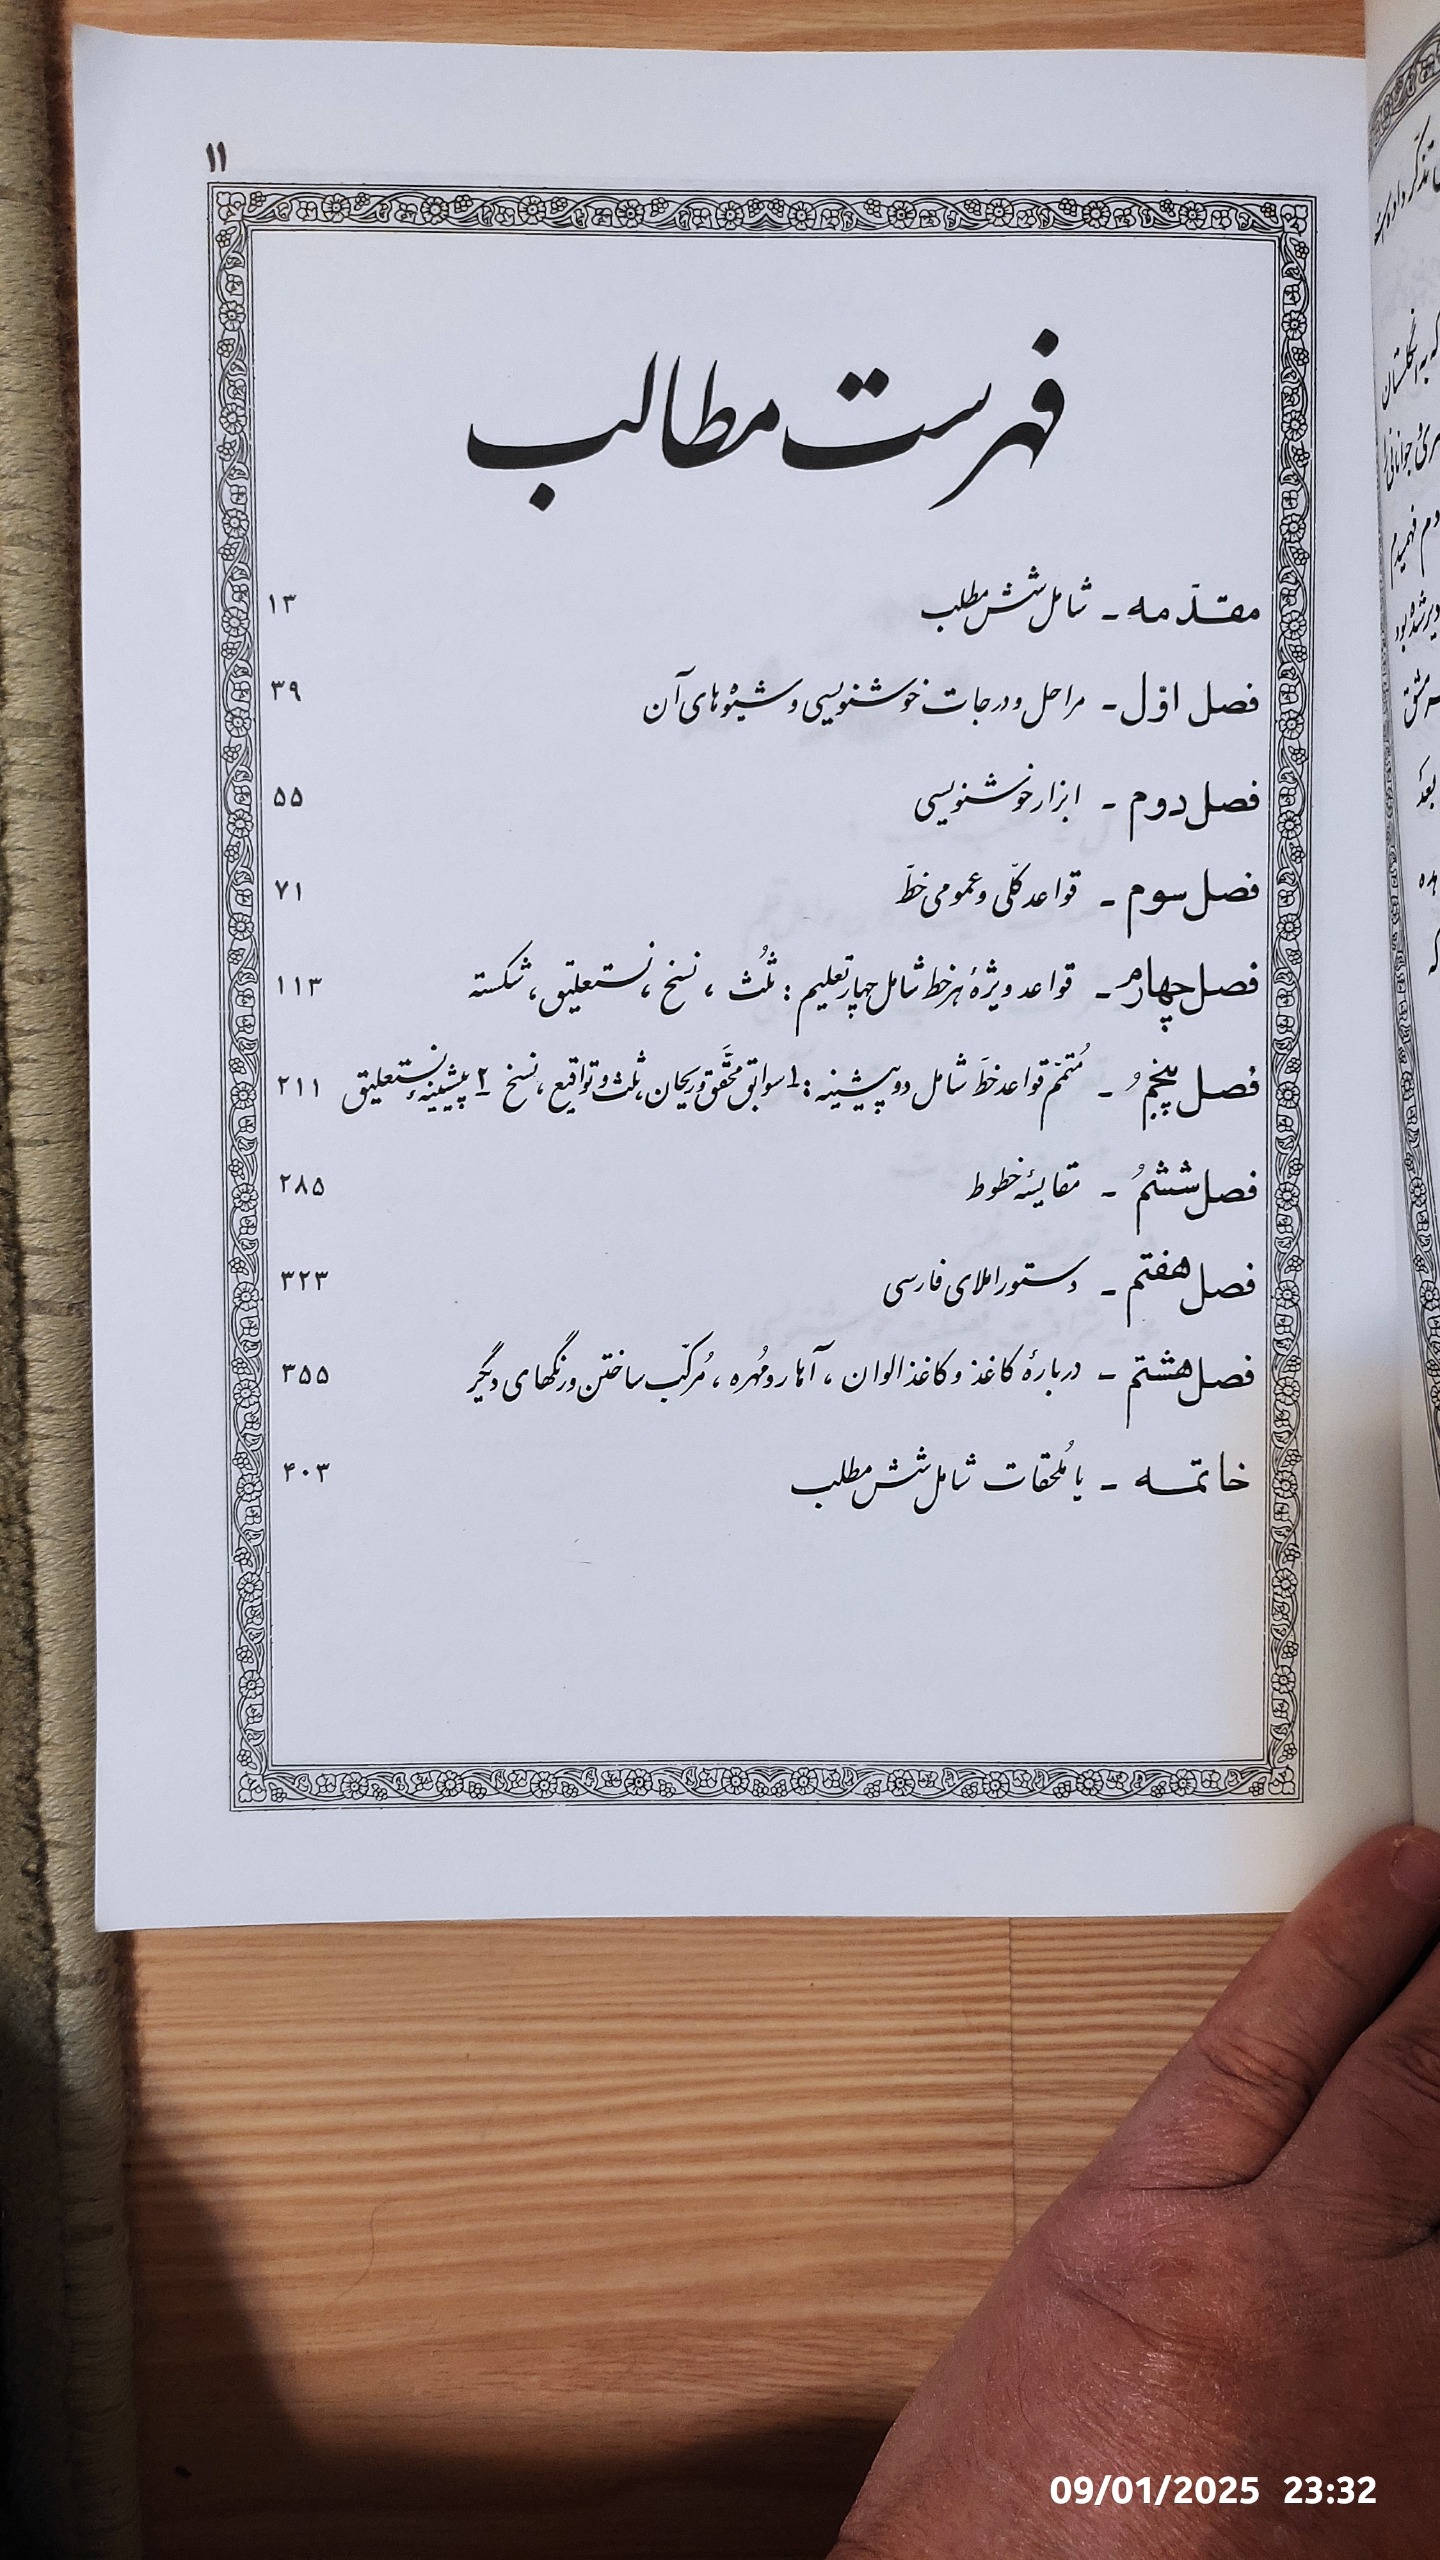 ۱۱
فهرست مطالب
مقدّمه - شامل شش مطلب ۱۳
فصل اوّل - مراحل و درجات خوشنویسی و شیوه‌های آن ۳۹
فصل دوم - ابزار خوشنویسی ۵۵
فصل سوم - قواعد کلّی و عمومی خطّ ۷۱
فصل چهارم - قواعد ویژهٔ هر خط شامل چهار تعلیم : ثُلث ، نسخ ، نستعلیق ، شکسته ۱۱۳
فصل پنجم - مُتمّم قواعد خطّ شامل دو پیشینه : ۱ـ سوابق محقَّق و ریحان، ثلث و تواقیع ، نسخ ۲ـ پیشینهٔ نستعلیق ۲۱۱
فصل ششم - مقایسهٔ خطوط ۲۸۵
فصل هفتم - دستور املای فارسی ۳۲۳
فصل هشتم - دربارهٔ کاغذ و کاغذ الوان ، آهار و مُهره ، مُرکّب ساختن و رنگهای دیگر ۳۵۵
خاتمه - یا مُلحقات شامل شش مطلب ۴۰۳
تذکّر داده
که به انگلستان
جوانانی را
فهمیدم
دیر شده بود
مشق
بعد
که
09/01/2025 23:32